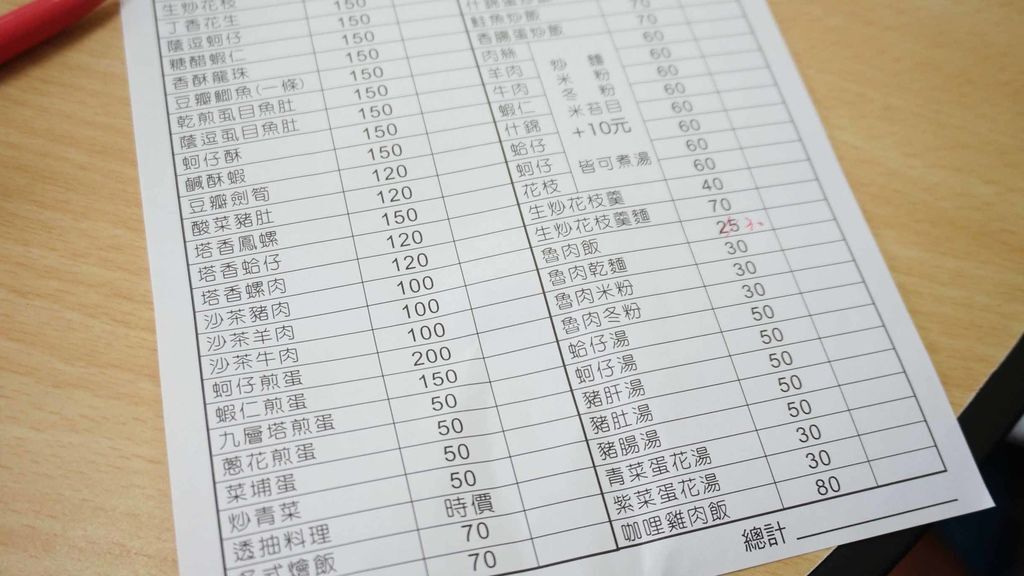 生炒花枝
丁香花生
蔭逗蚵仔 150
糖醋蝦仁 150
香酥龍珠 150
豆瓣鯽魚(一條) 150
乾煎虱目魚肚 150
蔭逗虱目魚肚 150
蚵仔酥 150
鹹酥蝦 150
豆瓣劍筍 120
酸菜豬肚 120
塔香鳳螺 150
塔香蛤仔 120
塔香螺肉 120
沙茶豬肉 100
沙茶羊肉 100
沙茶牛肉 100
蚵仔煎蛋 200
蝦仁煎蛋 150
九層塔煎蛋 50
蔥花煎蛋 50
菜埔蛋 50
炒青菜 50
透抽料理 時價
各式燴飯 70
70
什錦蛋炒飯
鮭魚炒飯 70
香腸蛋炒飯 70
肉絲 60
羊肉 60
牛肉 60
蝦仁 60
什錦 60
蛤仔 60
蚵仔 60
花枝 60
炒麵
米粉
冬粉
米苔目
+10元
皆可煮湯
生炒花枝羹 40
生炒花枝羹麵 70
魯肉飯 25
魯肉乾麵 30
魯肉米粉 30
魯肉冬粉 30
蛤仔湯 50
蚵仔湯 50
豬肝湯 50
豬肚湯 50
豬腸湯 50
青菜蛋花湯 30
紫菜蛋花湯 30
咖哩雞肉飯 80
總計